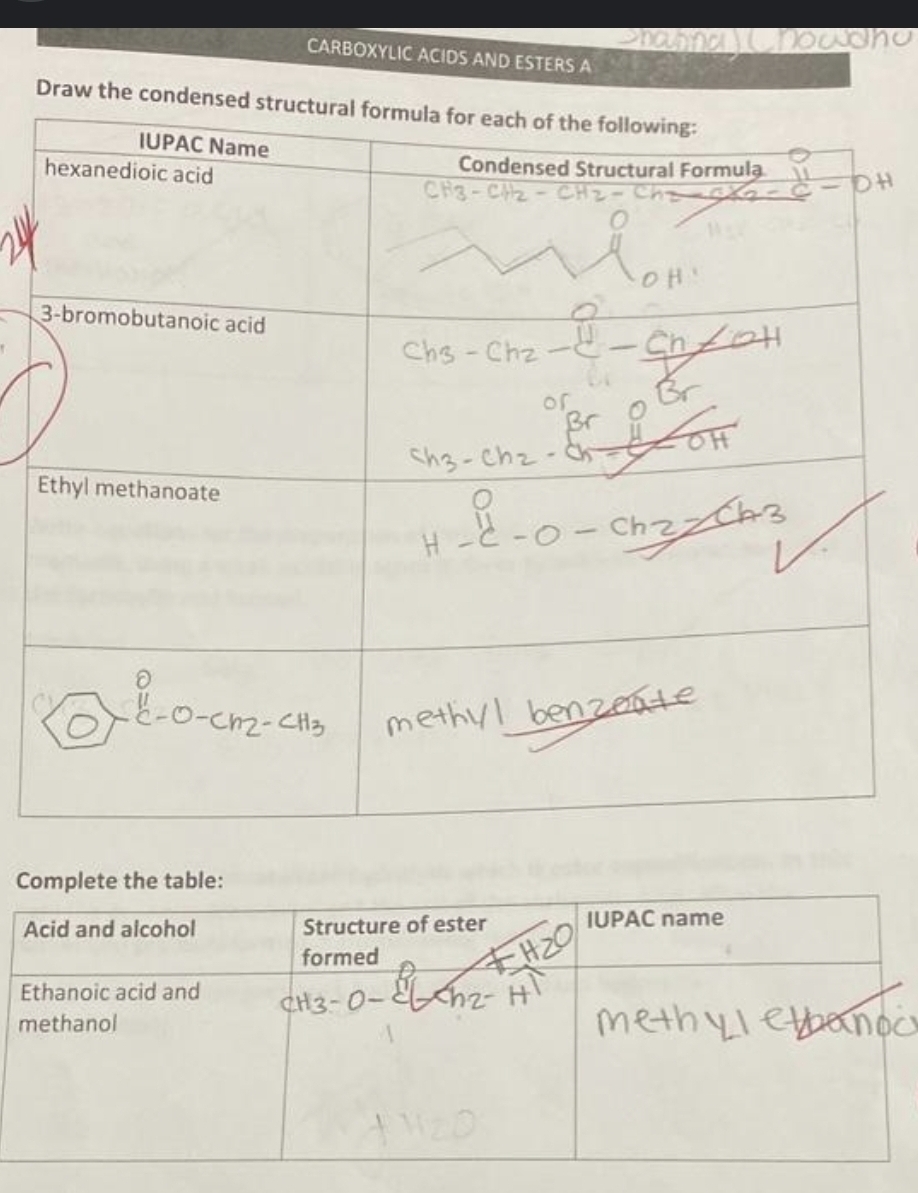 CARBOXYLIC ACIDS AND ESTERS A
Draw the condensed structural formula for each of the following:
IUPAC Name
Condensed Structural Formula
hexanedioic acid
O
CH3-CH2-CH2-Ch2-CH2-C-OH
O
OH
3-bromobutanoic acid
O
Ch3-Ch2-C-Ch-OH
Br
or
Br O
Ch3-Ch2-Ch-C-OH
Ethyl methanoate
O
H-C-O-Ch2-Ch3
O
C-O-Ch2-CH3
methyl benzoate
Complete the table:
Acid and alcohol
Structure of ester formed
IUPAC name
+ H2O
Ethanoic acid and methanol
O
CH3-O-C-Ch2-H
methyl
+ H2O